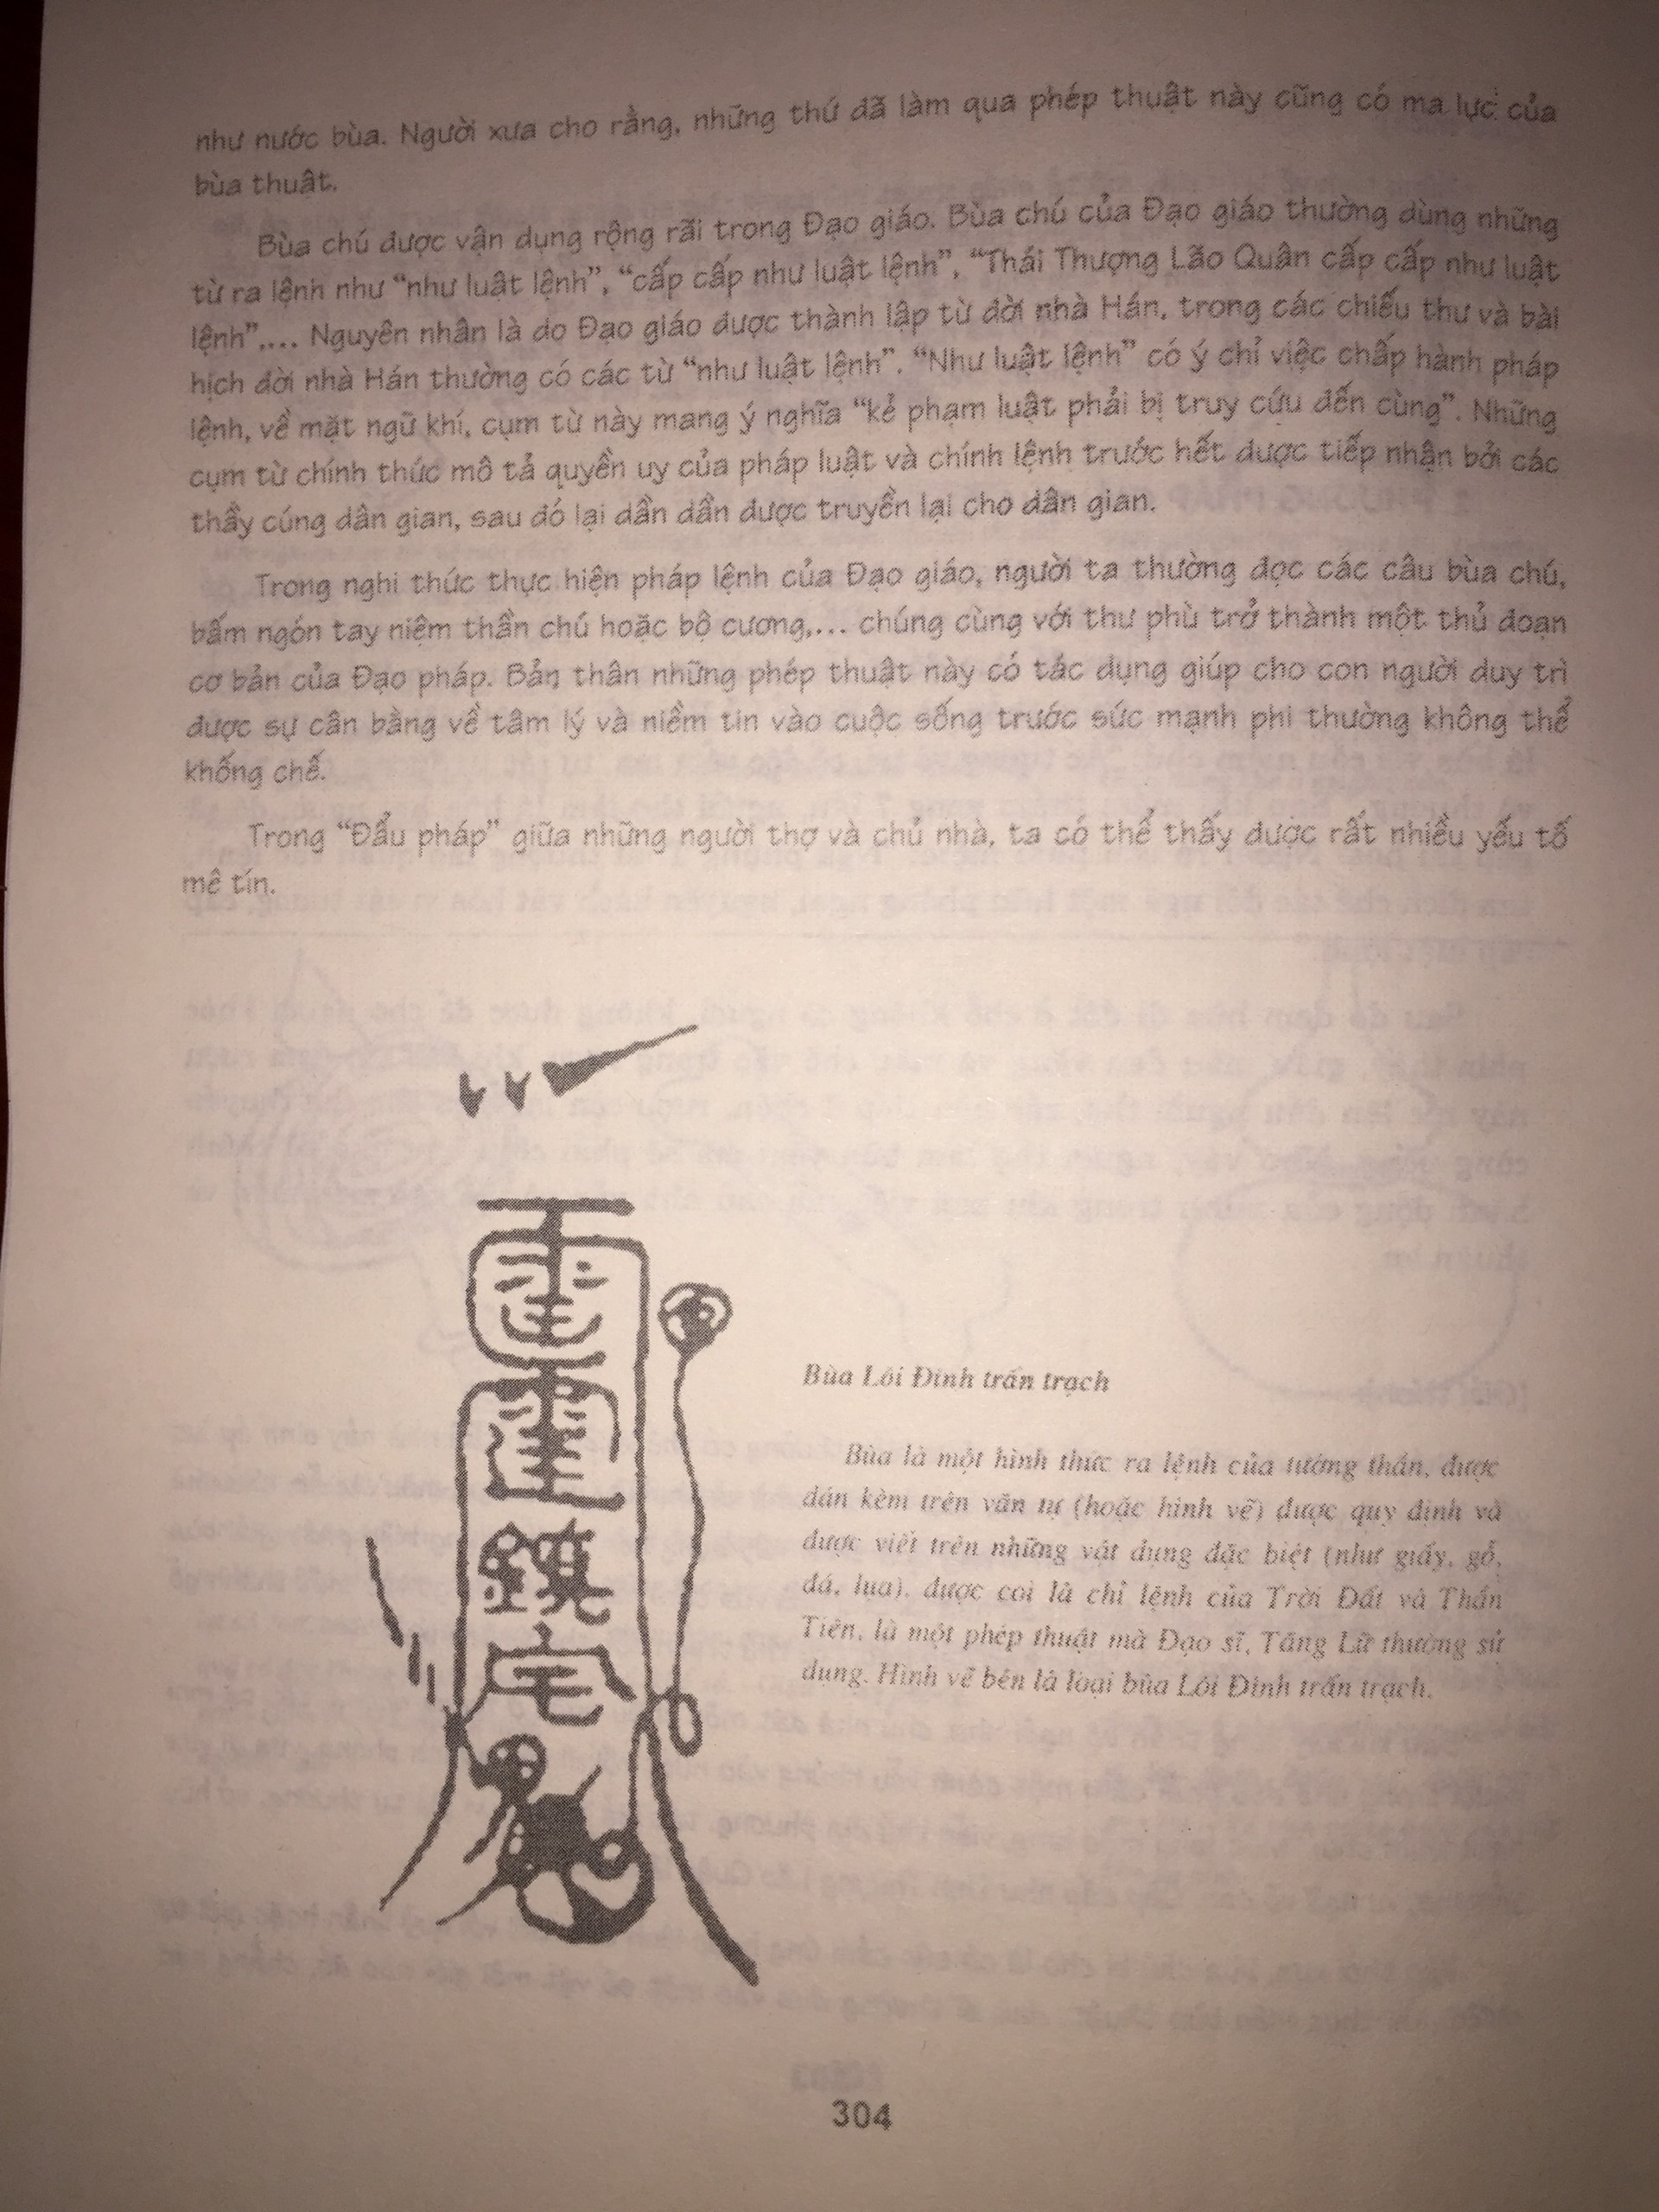 như nước bùa. Người xưa cho rằng, những thứ đã làm qua phép thuật này cũng có ma lực của
bùa thuật.
Bùa chú được vận dụng rộng rãi trong Đạo giáo. Bùa chú của Đạo giáo thường dùng những
từ ra lệnh như “như luật lệnh”, “cấp cấp như luật lệnh”, “Thái Thượng Lão Quân cấp cấp như luật
lệnh”,... Nguyên nhân là do Đạo giáo được thành lập từ đời nhà Hán, trong các chiếu thư và bài
hịch đời nhà Hán thường có các từ “như luật lệnh”. “Như luật lệnh” có ý chỉ việc chấp hành pháp
lệnh, về mặt ngữ khí, cụm từ này mang ý nghĩa “kẻ phạm luật phải bị truy cứu đến cùng”. Những
cụm từ chính thức mô tả quyền uy của pháp luật và chính lệnh trước hết được tiếp nhận bởi các
thầy cúng dân gian, sau đó lại dần dần được truyền lại cho dân gian.
Trong nghi thức thực hiện pháp lệnh của Đạo giáo, người ta thường đọc các câu bùa chú,
bấm ngón tay niệm thần chú hoặc bộ cương,... chúng cùng với thư phù trở thành một thủ đoạn
cơ bản của Đạo pháp. Bản thân những phép thuật này có tác dụng giúp cho con người duy trì
được sự cân bằng về tâm lý và niềm tin vào cuộc sống trước sức mạnh phi thường không thể
khống chế.
Trong “Đấu pháp” giữa những người thợ và chủ nhà, ta có thể thấy được rất nhiều yếu tố
mê tín.
鎮
宅
Bùa Lôi Đình trấn trạch
Bùa là một hình thức ra lệnh của tướng thần, được
dán kèm trên văn tự (hoặc hình vẽ) được quy định và
được viết trên những vật dụng đặc biệt (như giấy, gỗ,
đá, lụa), được coi là chỉ lệnh của Trời Đất và Thần
Tiên, là một phép thuật mà Đạo sĩ, Tăng Lữ thường sử
dụng. Hình vẽ bên là loại bùa Lôi Đình trấn trạch.
304